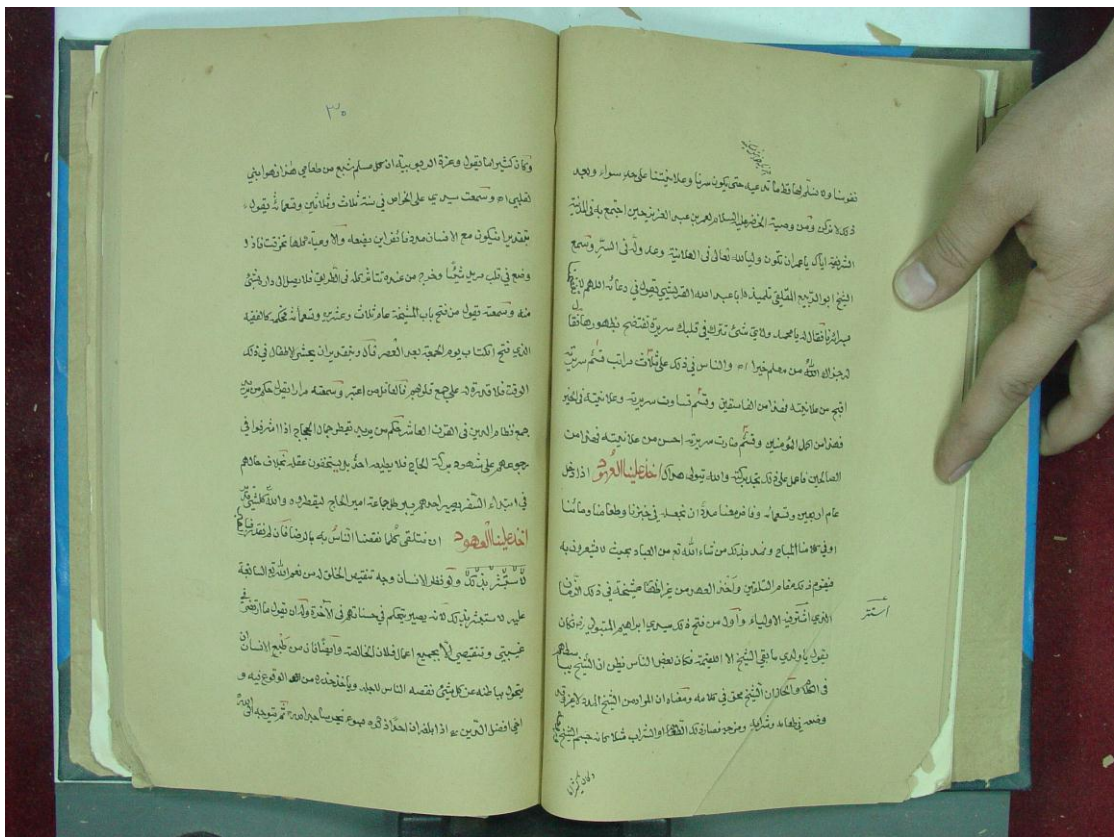 نفوسنا ولا نسلم لها قط ما تدعيه حتى يكون سرنا وعلانيتنا على حد سواء وبعد
ذلك لا نزكى ومن وصية الخضر عليه السلام لعمر بن عبد العزيز حين اجتمع به في المدينة
الشريفة اياك يا عمر ان تكون وليا لله تعالى في العلانية وعدوله فى السر وسمع
الشيخ ابو الربيع المالقي تلميذه ابا عبد الله القريشي يقول في دعائه اللهم لا تفضح
سرائرنا فقال له يا محمد ولاي شئ تترك في قلبك سريرة تفتضح بظهورها
لم جزاك الله من معلم خيرا اه والناس في ذلك على ثلاث مراتب قسم سريرته
اقبح من علانيته فهذا من الفاسقين وقسم تساوت سريرته وعلانيته في الخير
فهذا من اكمل المؤمنين وقسم صارت سريرته احسن من علانيته فهذا من
الصالحين فاعمل على ذلك تجد بركته والله يتولى هداك اخذ علينا العهود اذا دخل
عام اربعين وتسعمائة ان نجعل في خبزنا وطعامنا ومائنا
او في كلامنا المباح ونمد بذلك من شاء الله تع من العباد بحيث لا شعور له به
فيقوم ذلك مقام التلقين واخذ العهد من غير المشيخة في ذلك الزمان
الذي اشترفيه الاولياء وأول من فتح ذلك سيدي ابراهيم المتبولي رض فكان
يقول يا ولدي ما بقي للشيخ الا اللقيمة فكان بعض الناس يظن ان الشيخ
في الاكل والحال ان الشيخ محق في كلامه ومعناه ان المراد من الشيخ المدد
وضعه في طعامه وشرابه ومزجه فصار ذلك الطعام او الشراب مثلا كانه جسم الشيخ
استتر
وكان كثيرا
٣٠
وكان كثيرا ما يقول وعزة الربوبية ان كل مسلم شبع من طعامي هذا فهو ابني
لقلبي اه وسمعت سيدي علي الخواص في سنة ثلاث وثلاثين وتسعمائة يقول
بتقديرا سيكون مع الانسان مردفا نفر اين يضعه والا وعيه جملها تخرقت فاذا
وضع في قلب مريد شيئا وخرج من عنده تناثر كله في الطريق فلا يصل الى داره بشئ
منه وسمعته يقول من فتح باب المشيخة عام ثلاث وعشرين وتسعمائة فحكمه كالفقيه
الذي فتح الكتاب يوم الجمعة بعد العصر قال وبتقدير ان يعشى الاطفال في ذلك
الوقت فلا قدرة له على جمع قلوبهم فالعاقل من اعتبر وسمعته مرارا يقول حكم من يريد
جمع نظام الدين في القرن العاشر حكم من يريد تقطير جمال الحجاج اذا اشرفوا في
رجوعهم على شهود بركة الحاج فلا يطيعه احد بل يستخفون عقله بخلاف حالهم
في ابتداء السفر يصير احدهم يبرطل جماعة امير الحاج ليقطروه والله على كل شئ
اخذ علينا العهود ان نتلقى كلما نقصنا الناس به بالرضا فان لم نقدر
لا نستبشر بذلك ولو نظر الانسان وجه تنقيص الخلق له من نعم الله تع السابغة
عليه لاستبشر بذلك لانه يصير يتحكم في حسناتهم في الآخرة وله ان يقول ما ارتضى في
غيبتي وتنقيصي الا بجميع اعمال فلان الخالصة وايضا فان من طبع الانسان ان
يتحول بباطنه عن كل شئ نقصه الناس لاجله وياخذ حذره من الوقوع فيه و
اخي افضل الدين رض اذا بلغه ان احدا ذكره بسوء ثم توجه الى الله